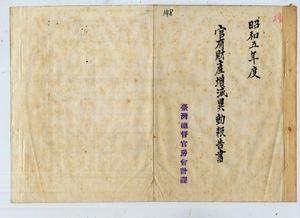 昭和五年度
官有財產增減異動報告書
臺灣總督官房會計課
148